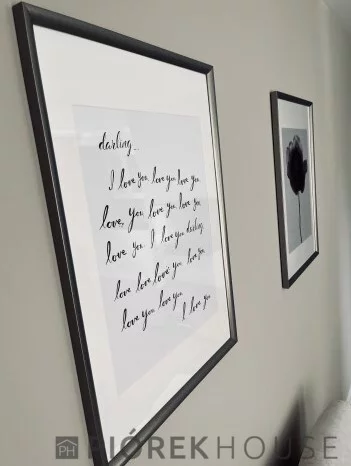 darling...
I love you, love you, love you,
love, you, love you, love you,
love you. I love you darling,
love love love you, love you
love you love you
I love you
PH PIÓREKHOUSE